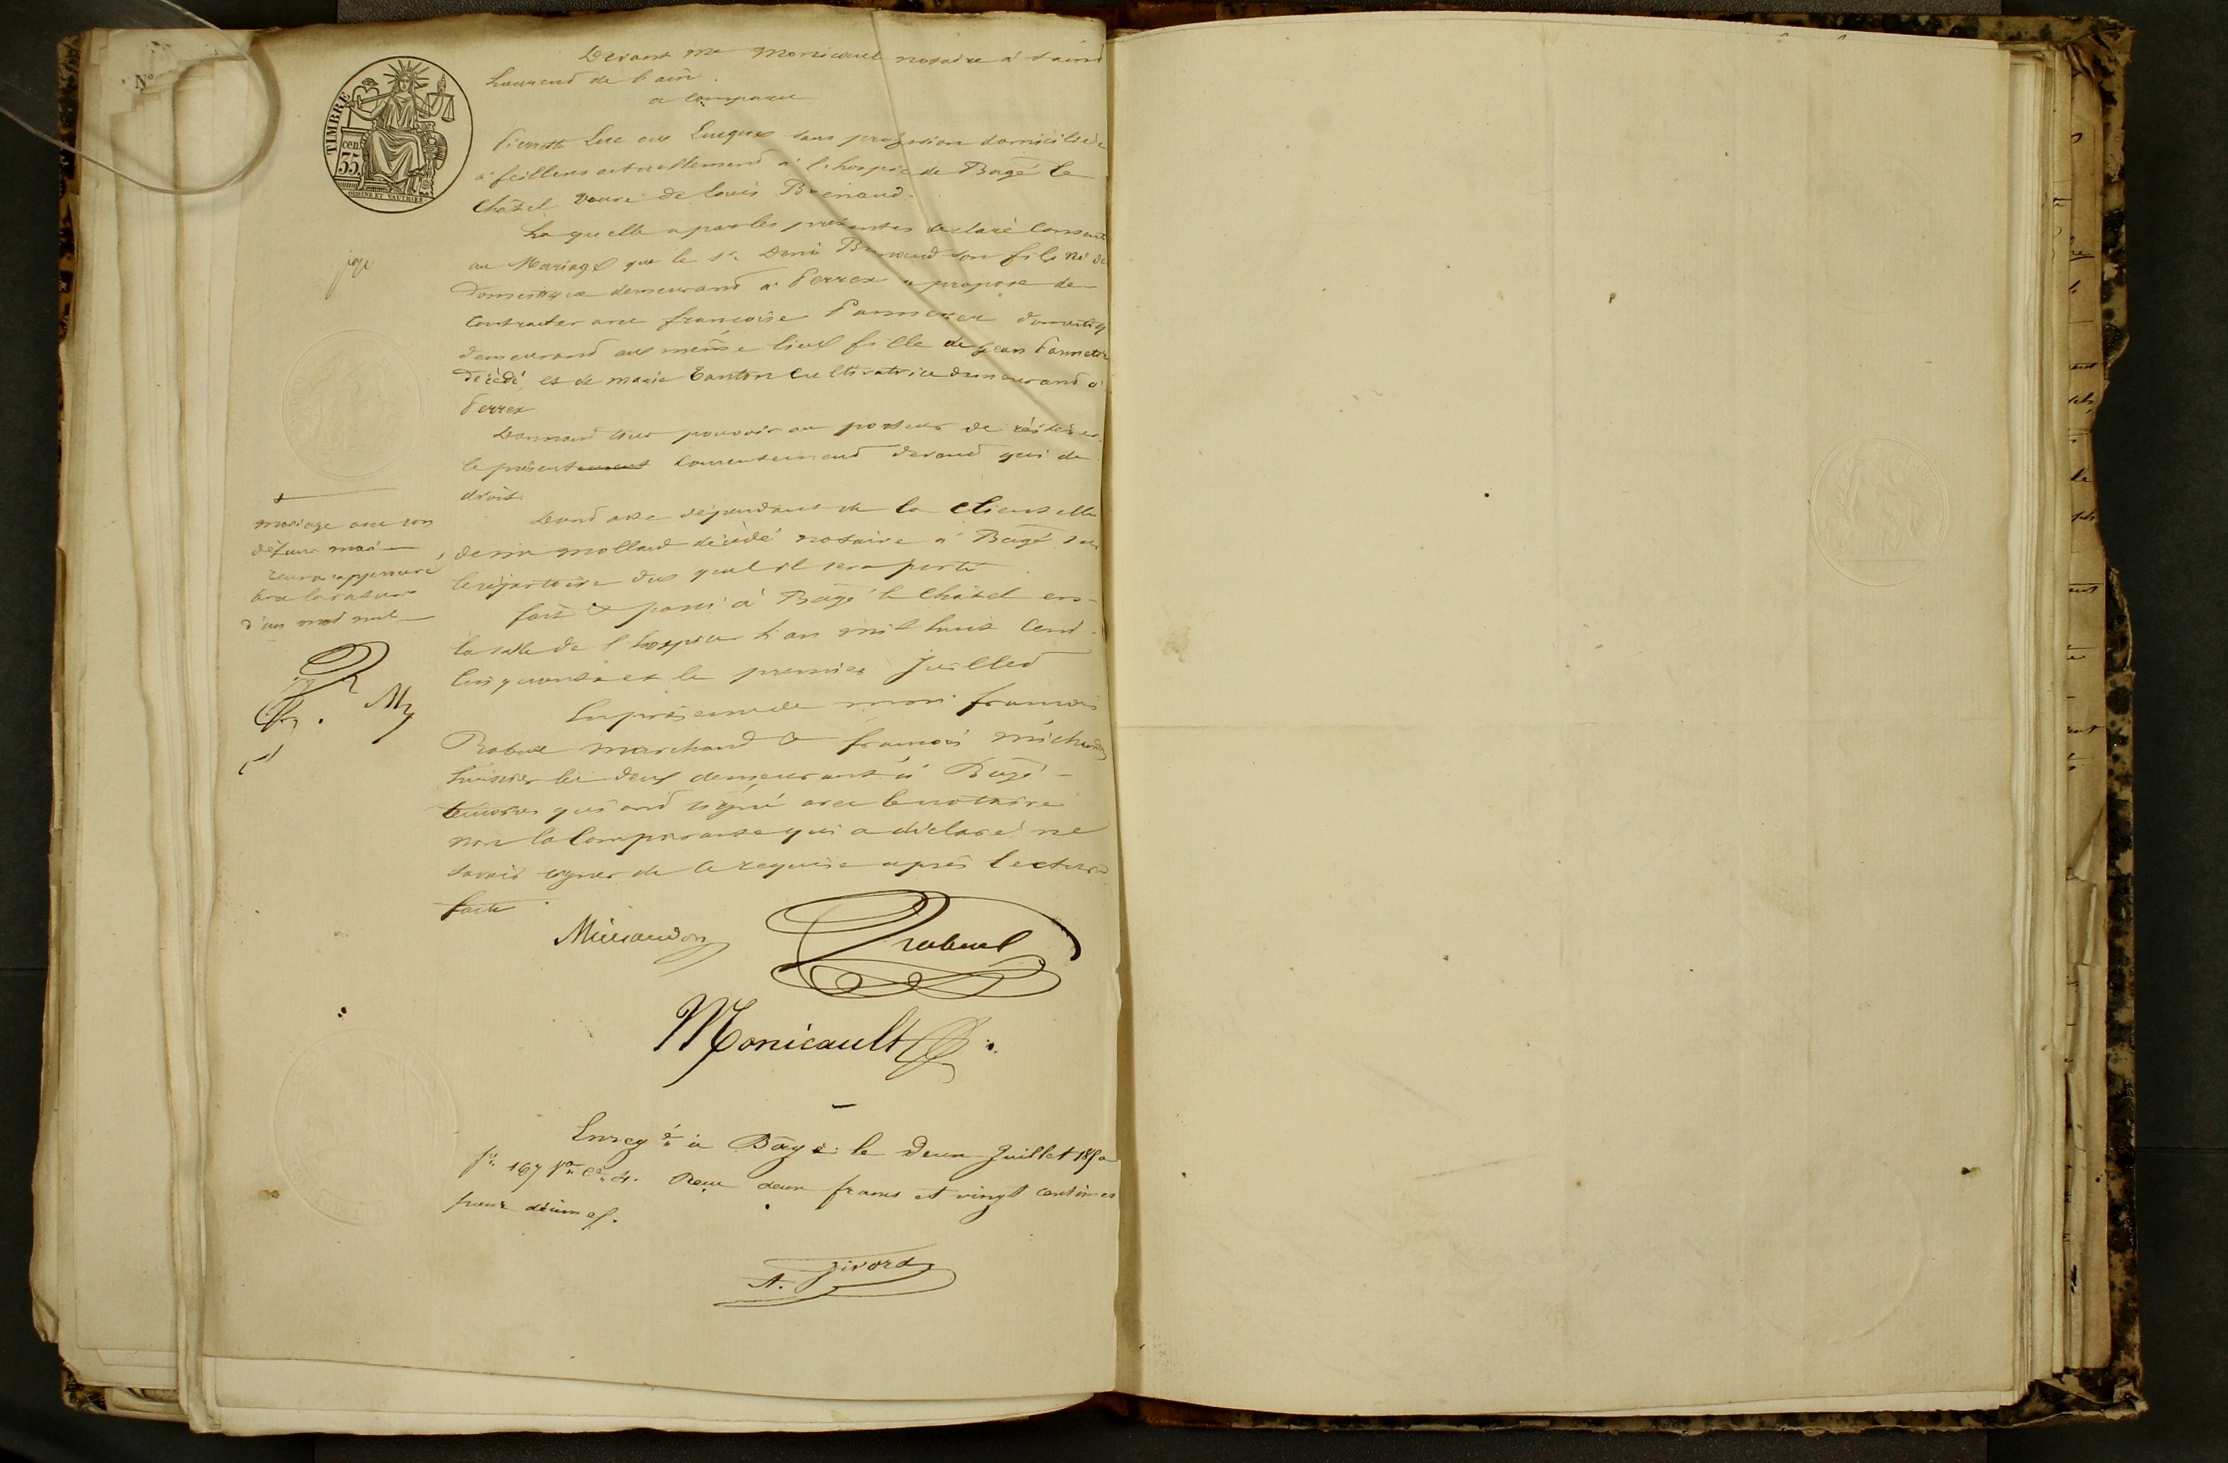 N°
TIMBRE
35 cen
Devant Me Monicault notaire à saint
Laurend de l'ain.
a comparu
Pierrette Luc ou Lucques sans profession domiciliée
à feillens actuellement à l'hospice de Bagé le
Châtel veuve de Louis Brenaud.
La quelle a par les présentes déclaré Consentir
au Mariage que le sr Denis Brenaud son fils
domestique demeurand à Perrex propose de
Contracter avec francoise Pannetier domestiq
demeurand au même lieux fille de jean Pannetier
décédé et de marie Tanton cultivatrice demeurand à
Perrex
Donnand tous pouvoir au porteur de réitérer
le présentement Consentement devand qui de
droit.
Dond acte dépendant de la Clientelle
de mollard décédé notaire à Bagé sur
le répertoire du quel il sera porté
fait & passé à Bagé le Châtel en
la salle de l'hospice L'an mil huit Cent
Cinquante et le premier Juilled
En présence de francois
Rabuel marchand & francois michaudon
huissier les deux demeurant à Bagé
témoins qui ond signé avec le notaire
non la Comparante qui a déclaré ne
savoir signer de ce requise après lecture
faite
mariage avec son
défunt mari
renvoi approuvé
avec la rature
d'un mot nul
Michaudon Rabuel
Monicault
Enregé à Bagé le Deux Juillet 1850
fo 167 vo Ce 4. Reçu deux francs et vingt centimes
pour décimes.
A. Givord